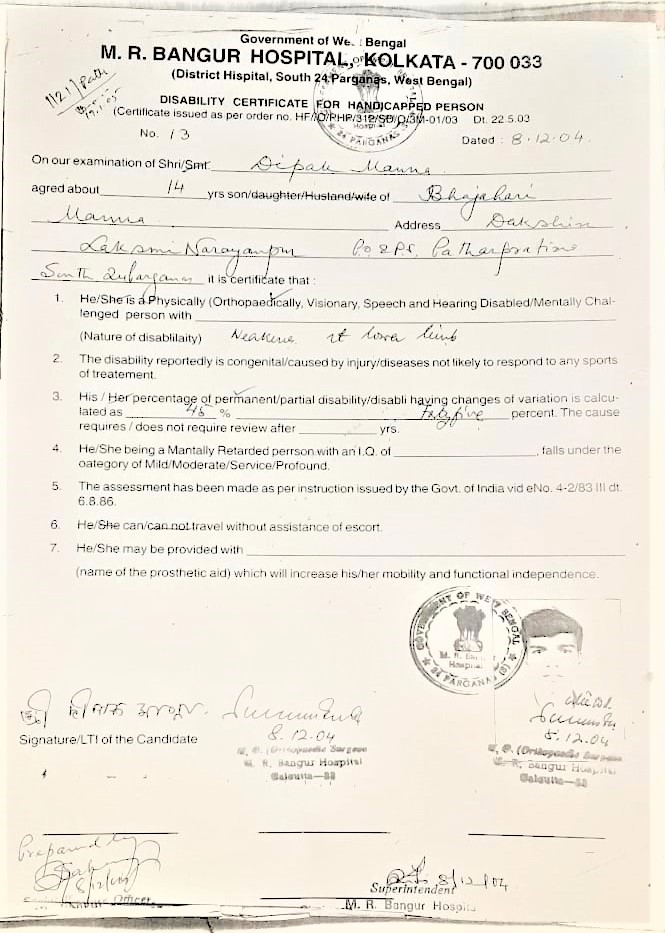 Government of We. Bengal
M. R. BANGUR HOSPITAL, KOLKATA - 700 033
(District Hispital, South 24 Parganas, West Bengal)
DISABILITY CERTIFICATE FOR HANDICAPPED PERSON
(Certificate issued as per order no. HF/O/PHP/312/SD/O/3M-01/03 Dt. 22.5.03
No. 13 Dated : 8.12.04.
On our examination of Shri/Smt. Dipak Manna
agred about 14 yrs son/daughter/Husland/wife of Bhajahari
Manna Address Dakshin
Laksmi Narayanpur P.O & P.S. Patharpratima
South 24 Parganas it is certificate that :
1. He/She is a Physically (Orthopaedically, Visionary, Speech and Hearing Disabled/Mentally Chal-
lenged person with
(Nature of disablilaity) Weakness rt lower limb
2. The disability reportedly is congenital/caused by injury/diseases not likely to respond to any sports
of treatement.
3. His / Her percentage of permanent/partial disability/disabli having changes of variation is calcu-
lated as 45 % percent. The cause
requires / does not require review after yrs.
4. He/She being a Mantally Retarded perrson with an I.Q. of , falls under the
oategory of Mild/Moderate/Service/Profound.
5. The assessment has been made as per instruction issued by the Govt. of India vid eNo. 4-2/83 III dt.
6.8.86.
6. He/She can/can not travel without assistance of escort.
7. He/She may be provided with
(name of the prosthetic aid) which will increase his/her mobility and functional independence.
GOVERNMENT OF WEST BENGAL
M. R. Bangur
Hospital
24 PARGANAS (S)
8.12.04
Signature/LTI of the Candidate
(Orthopaedic Surgeon
M. R. Bangur Hospital
Calcutta—33
8.12.04
(Orthopaedic Surgeon
M. R. Bangur Hospital
Calcutta—33
Prepared by
8/12/04
8/12/04
Superintendent
M. R. Bangur Hospital